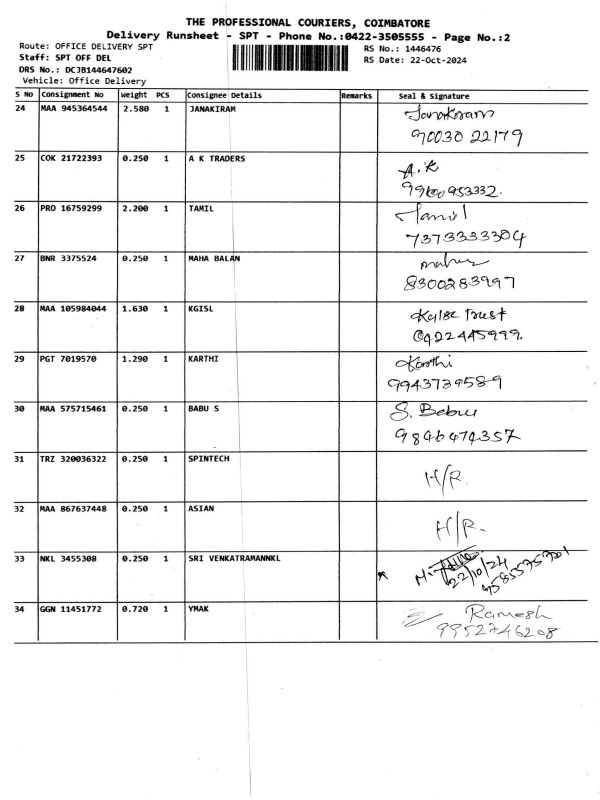 THE PROFESSIONAL COURIERS, COIMBATORE
Delivery Runsheet - SPT - Phone No.:0422-3505555 - Page No.:2
Route: OFFICE DELIVERY SPT
RS No.: 1446476
Staff: SPT OFF DEL
RS Date: 22-Oct-2024
DRS No.: DCJB144647602
Vehicle: Office Delivery
S NO Consignment No Weight PCS Consignee Details Remarks Seal & Signature
24 MAA 945364544 2.580 1 JANAKIRAM Janakiram
90030 22179
25 COK 21722393 0.250 1 A K TRADERS A.K
953332.
26 PRO 16759299 2.200 1 TAMIL Tamil
7373333304
27 BNR 3375524 0.250 1 MAHA BALAN
8300283997
28 MAA 105984044 1.630 1 KGISL Trust
0422445999.
29 PGT 7019570 1.290 1 KARTHI Karthi
9943739589
30 MAA 575715461 0.250 1 BABU S S. Babu
9846474357
31 TRZ 320036322 0.250 1 SPINTECH H/R.
32 MAA 867637448 0.250 1 ASIAN H/R.
33 NKL 3455308 0.250 1 SRI VENKATRAMANNKL M.
22/10/24
34 GGN 11451772 0.720 1 YMAK Ramesh
9952746208